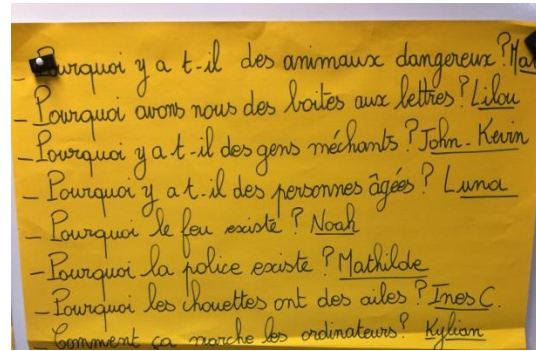 - Pourquoi y a t-il des animaux dangereux ? Mat
- Pourquoi avons nous des boites aux lettres ? Lilou
- Pourquoi y a t-il des gens méchants ? John-Kevin
- Pourquoi y a t-il des personnes âgées ? Luna
- Pourquoi le feu existe ? Noah
- Pourquoi la police existe ? Mathilde
- Pourquoi les chouettes ont des ailes ? Ines C.
- Comment ça marche les ordinateurs ? Kylian